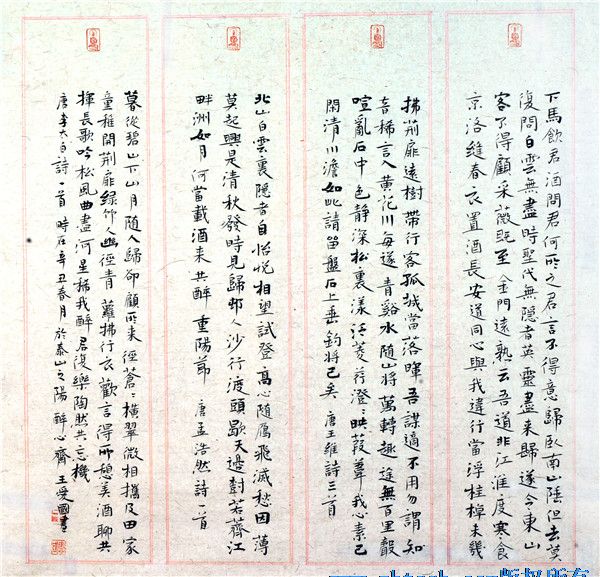 下馬飲君酒問君何所之君言不得意歸臥南山陲但去莫
復問白雲無盡時聖代無隱者英靈盡來歸遂令東山
客不得顧采薇既至金門遠孰云吾道非江淮度寒食
京洛縫春衣置酒長安道同心與我違行當浮桂棹未幾
拂荊扉遠樹帶行客孤城當落暉吾謀適不用勿謂知
音稀言入黃花川每逐青谿水隨山將萬轉趣途無百里聲
喧亂石中色靜深松裏漾泛菱荇澄〻映葭葦我心素已
閑清川澹如此請留盤石上垂釣將已矣 唐王維詩三首
北山白雲裏隱者自怡悅相望試登高心隨雁飛滅愁因薄
莫起興是清秋發時見歸邨人沙行渡頭歇天邊樹若薺江
畔洲如月何當載酒來共醉重陽節 唐孟浩然詩一首
暮從碧山下山月隨人歸卻顧所來徑蒼〻橫翠微相攜及田家
童稚開荊扉綠竹入幽徑青蘿拂行衣歡言得所憩美酒聊共
揮長歌吟松風曲盡河星稀我醉君復樂陶然共忘機
唐李太白詩一首 時在辛丑春月於泰山之陽醉心齋王愛國書